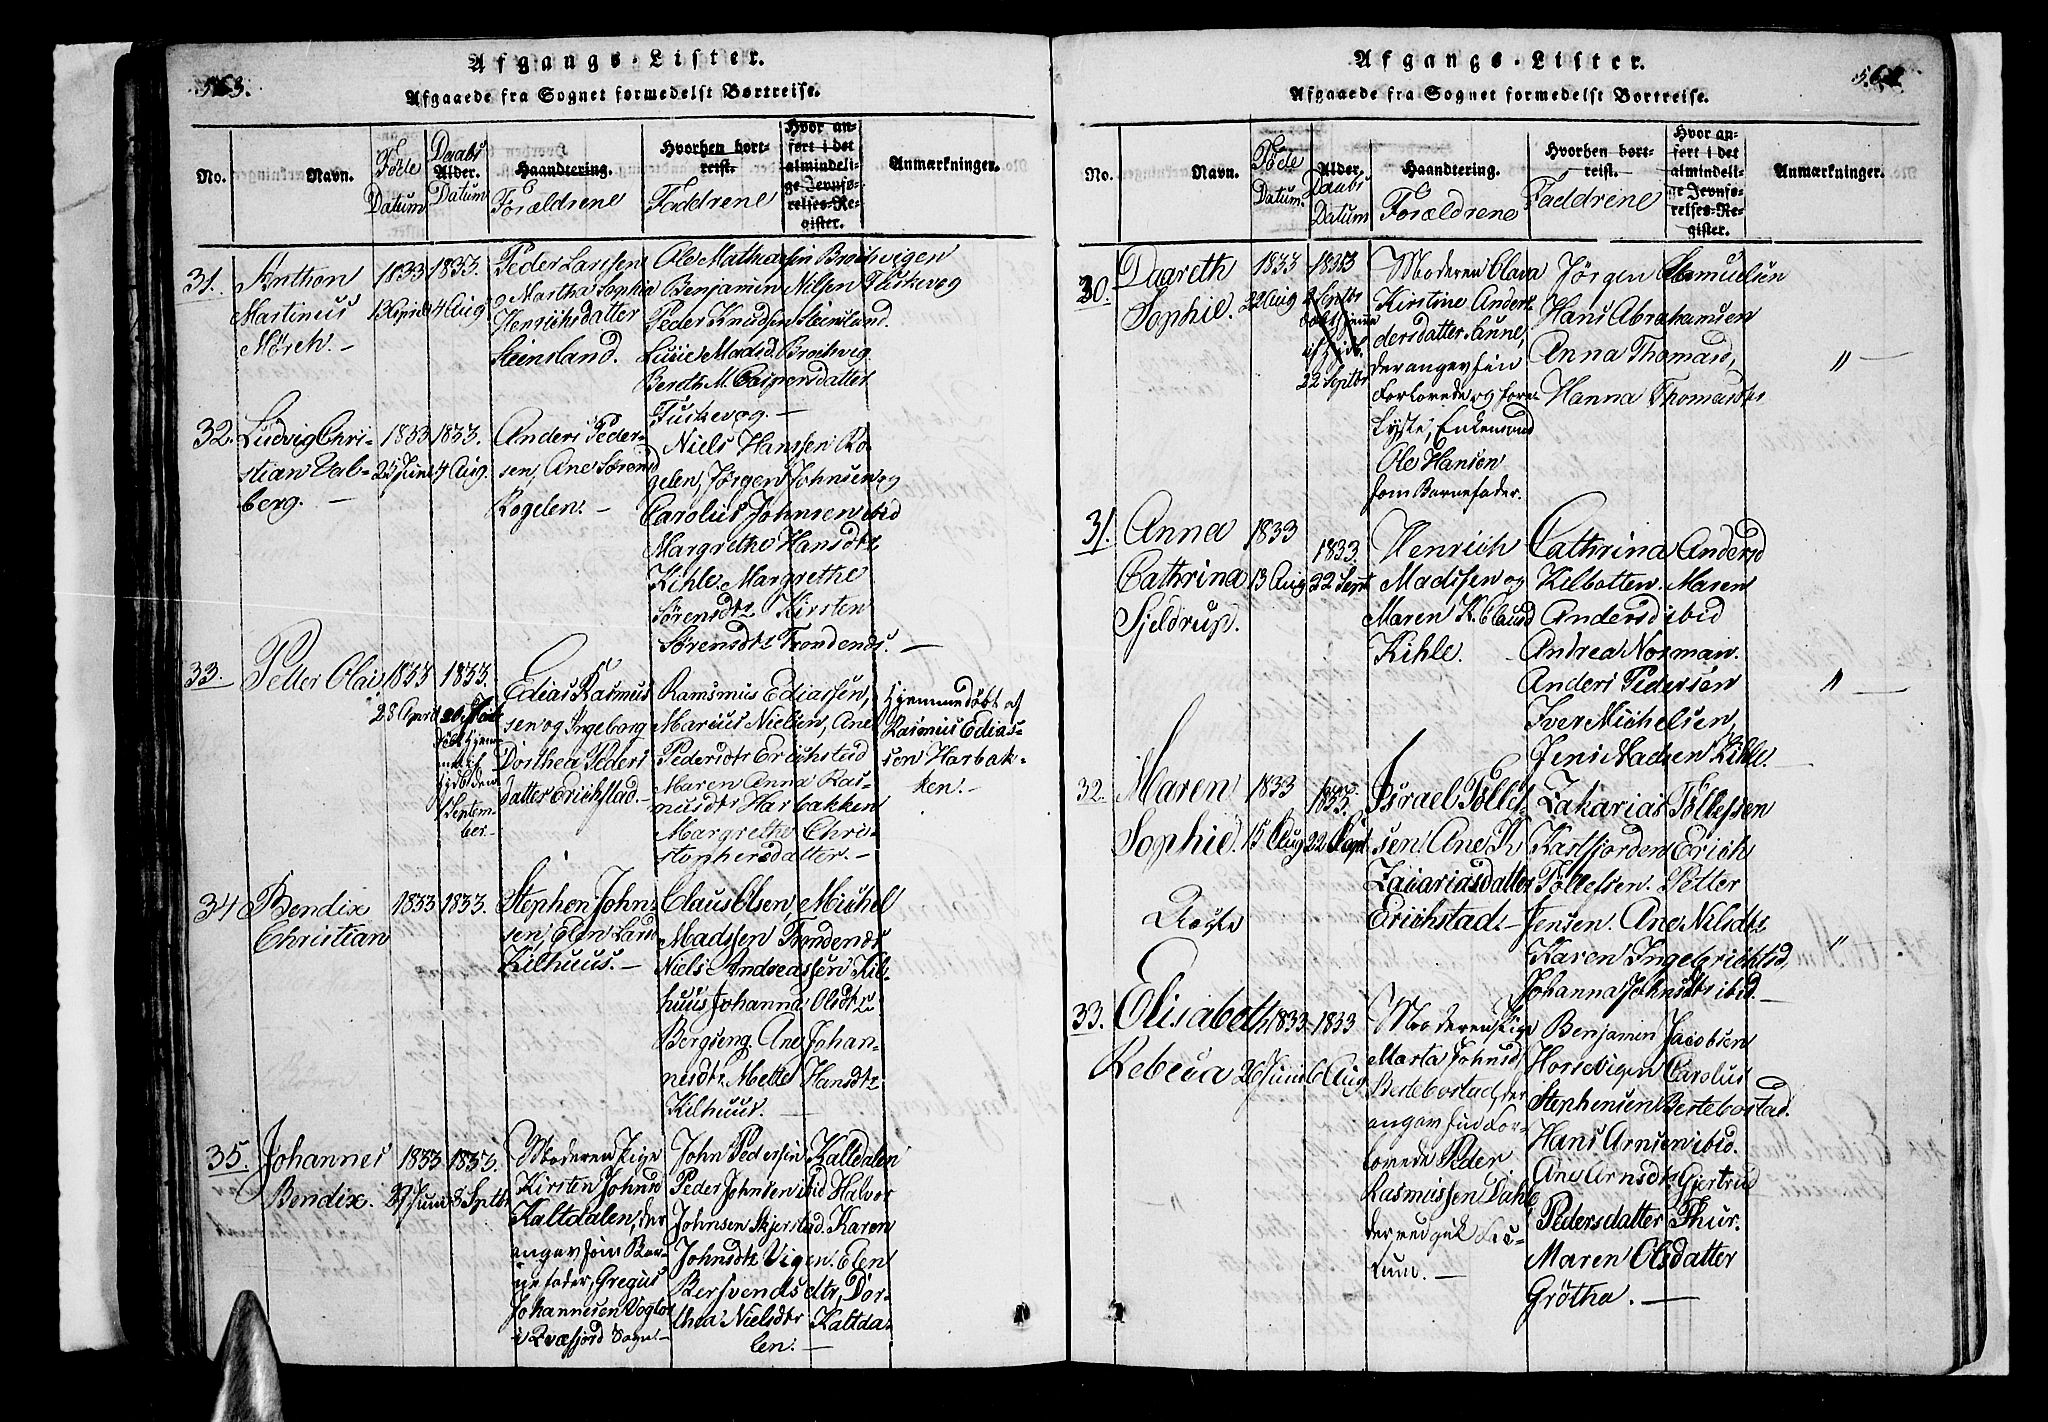 563.
Afgangs-Lister.
Afgaaede fra Sognet formedelst Bortreise.
No.
Navn.
Føde
Datum
Daabs
Alder.
Datum
Haandtering.
Forældrene
Hvorhen bort-
reist.
Faddrene
Hvor an-
ført i det
almindeli-
ge Jevnfø-
relses-Re-
gister.
Anmærkninger.
31.
Anthon
Martinus
Mørch. -
1833
13 April
1833.
4 Aug
Peder Larssen
Martha Sophia
Henrichsdatter
Steinsland.
Ole Mathiassen
Benjamin Nilsen Fuskevog
Peder Knudsen Steinsland.
Lusie Madsd. Brochvig
M. Caspersdatter
Fuskevog. -
32.
Ludvig Chri-
stian Val-
berg. -
1833
25 Juni
1833.
4 Aug.
Anders Peder-
sen, Ane Sørensd
Rogelen. -
Niels Hanssen Ro-
gelen, Jørgen Johnsen og
Carolus Johnsen ibid
Margrethe Hansdtr
Kihle. Margrethe
Sørensdtr Kirsten
Sørensdtr Trondenes. -
33.
Petter Olai
1833
28 April
1833.
Septem-
ber.
Edias Rasmus
sen og Ingeborg
Dorthea Peders
datter Erichstad. -
Ramsmus Ediassen,
Marcus Nielsen, Ane
Pedersdtr Erichstad
Maren Anna Ras-
musdtr Harbakken
Margrethe Chris-
tophersdatter. -
Hjemmedøbt af
Rasmus Edias-
sen Harbak-
ken. -
34
Bendix
Christian
1833
1833.
Stephen John-
sen, Elen Larsd
Kilhuus. -
Claus Olsen, Michel
Madssen Trondenæs
Niels Andreassen Kil-
huus Johanna Olsdtr
Bergseng. Ane Johan-
nesdtr Mette Hansdtr
Kilhuus. -
35.
Johannes
Bendix.
1833
27 Juni
1833.
8 Septbr
Moderen Pige
Kirsten Johnsd
Kaltdalen, der
angav som Bar-
nefader, Gregus
Johannesen Voglos
i Qvæfjord Sogn. -
John Pedersen Kaltdalen
Peder Johnsen ibid Halvor
Johnsen Skjerstad. Karen
Johnsdtr Vigen. Elen
Bersvendsdtr, Dor-
thea Nielsdtr Kaltda-
len. -
564
Afgangs-Lister.
Afgaaede fra Sognet formedelst Bortreise.
No.
Navn.
Føde
Datum.
Alder.
Daabs
Datum
Haandtering.
Forældrene
Hvorhen bort-
reist.
Faddrene
Hvor an-
ført i det
almindeli-
ge Jevnfø-
relses-Re-
gister.
Anmærkninger.
30.
Dagreth
Sophie.
1833
22 Aug
1833
22 Septbr
Moderen Olava
Kirstine Ander-
dersdatter Aune,
der angav sin
Forlovede og
Enkemand
Ole Hansen
som Barnefader.
Jørgen Samuelsen
Hans Abrahamsen
Anna Thomasd,
Hanna Thomasdtr
" -
31.
Anna
Cathrina
Sjeldrup.
1833
13 Aug
1833.
22 Sept
Henrich
Madssen og
Maren K. Clausd
Kihle.
Cathrina Andersd
Kilbotten. Maren
Andersd ibid
Andrea Norman.
Anders Pedersen
Iver Michelsen,
Jens Madsen Kihle.
" -
32.
Maren
Sophie.
1833
15 Aug
1833.
22 Sept
Israel Tollef-
sen, Ane K
Zacariasdatter
Erichstad. -
Zakarias Tollefsen
Kastfjorden Erich
Tollefsen. Petter
Jensen. Ane Nilsdtr
Karen Ingebrichtsd,
Johanna Johnsdtr ibid. -
"
33.
Elisabeth
Rebecca
1833
26 Juni
1833
6 Aug
Moderen Pige
Marta Johnsd,
der
angav sin For-
lovede Peder
Rasmussen Dahl
Benjamin Jacobsen
Horsevigen Carolus
Stephensen Bertebostad.
Hans Arnsen ibid.
Ane Arnsdtr Gjertrud
Pedersdatter Thur.
Maren Olsdatter
Grøtha. -